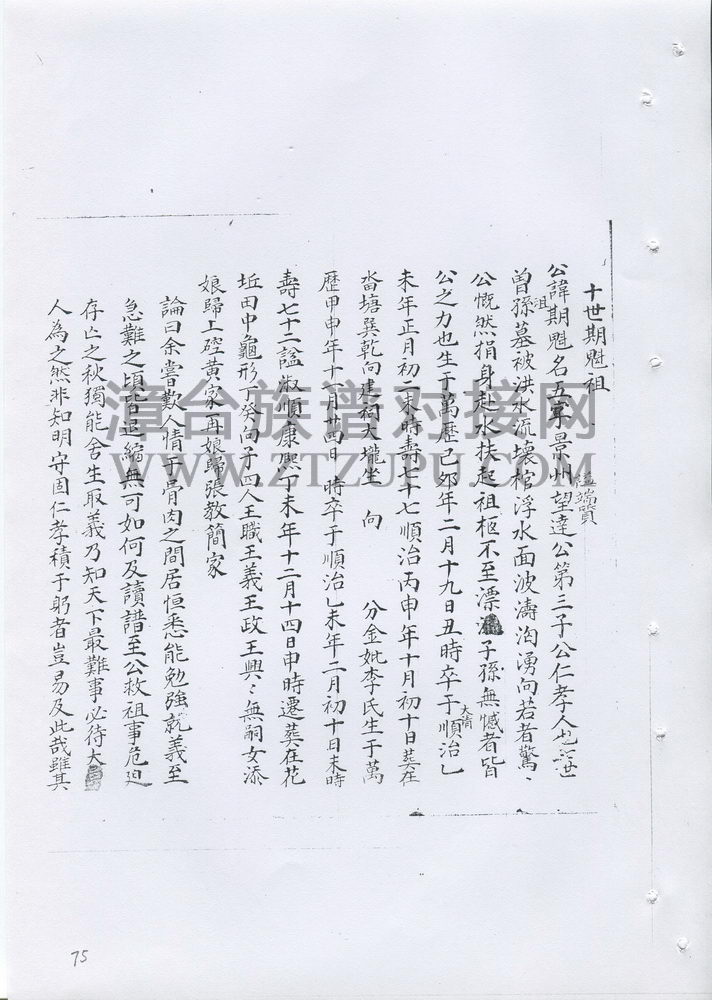 十世期魁祖
公諱期魁名五軍景州 謚端質 望達公第三子公仁孝人也
曾孫祖墓被洪水流壞棺浮水面波濤洶湧向若者驚〻
公慨然捐身赴水扶起祖柩不至漂 子孫無憾者皆
公之力也生于萬歷己卯年二月十九日丑時卒于大清順治乙
未年正月初二未時壽七十七順治丙申年十月初十日葬在
畓塘巽乾向建祠大壠坐 向 分金妣李氏生于萬
歷甲申年十一月廿四日 時卒于順治乙未年二月初十日未時
壽七十二謚淑順康熙丁未年十二月十四日申時遷葬在花
坵田中龜形丁癸向子四人王職王義王政王興〻無嗣女添
娘歸上硿黃家一再娘歸張教簡家
論曰余嘗歎人情于骨肉之間居恒悉能勉強就義至
急難之頃皆退縮無可如何及讀譜至公救祖事危迫
存亡之秋獨能舍生取義乃知天下最難事必待大
人為之然非知明守固仁孝積于躬者豈易及此哉雖其
漳台族谱对接网
WWW.ZTZUPU.COM
75